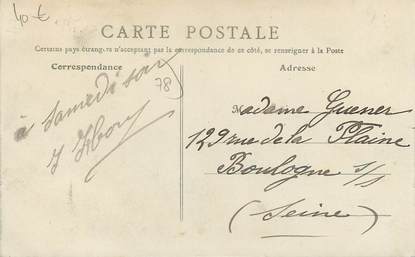 40 €
CARTE POSTALE
Certains pays étrangers n'acceptant par la correspondance de ce côté, se renseigner à la Poste
Correspondance
à samedi soir
78
Adresse
Madame Guener
129 rue de la Plaine
Boulogne s/s
(Seine)